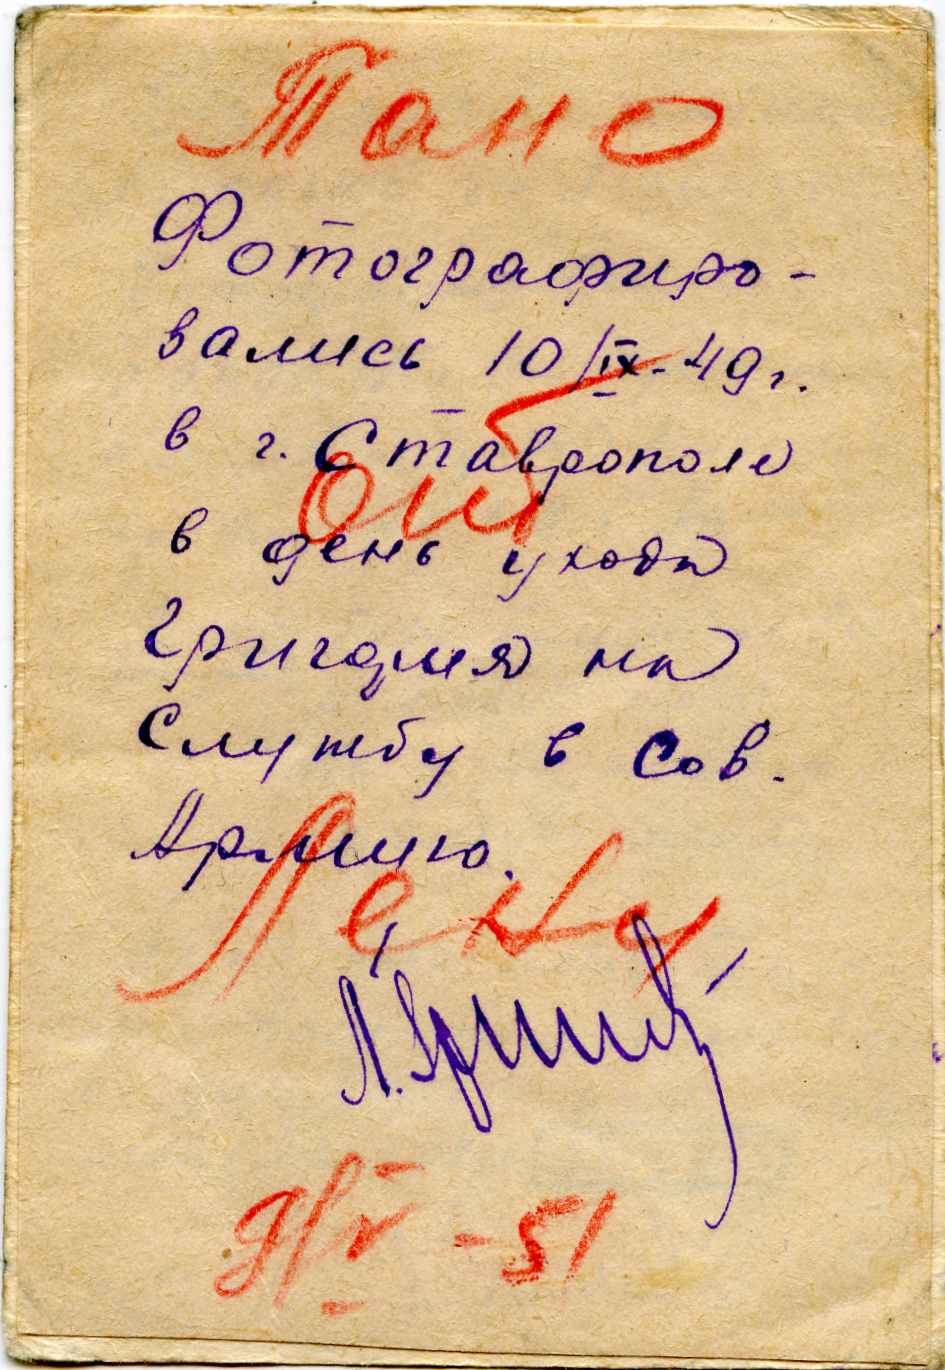 Тано
Фотографиро-
вались 10/IX-49г.
в г. Ставрополе
от
в день ухода
Григория на
службу в Сов.
Армию.
Лены
9/V-51